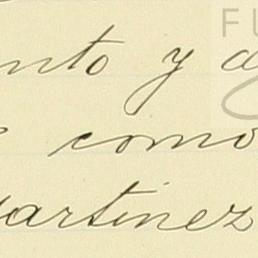 nto y d
como
artinez